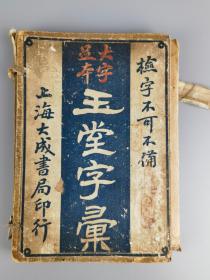 檢字不可不備
大字
足本
玉堂字彙
上海大成書局印行